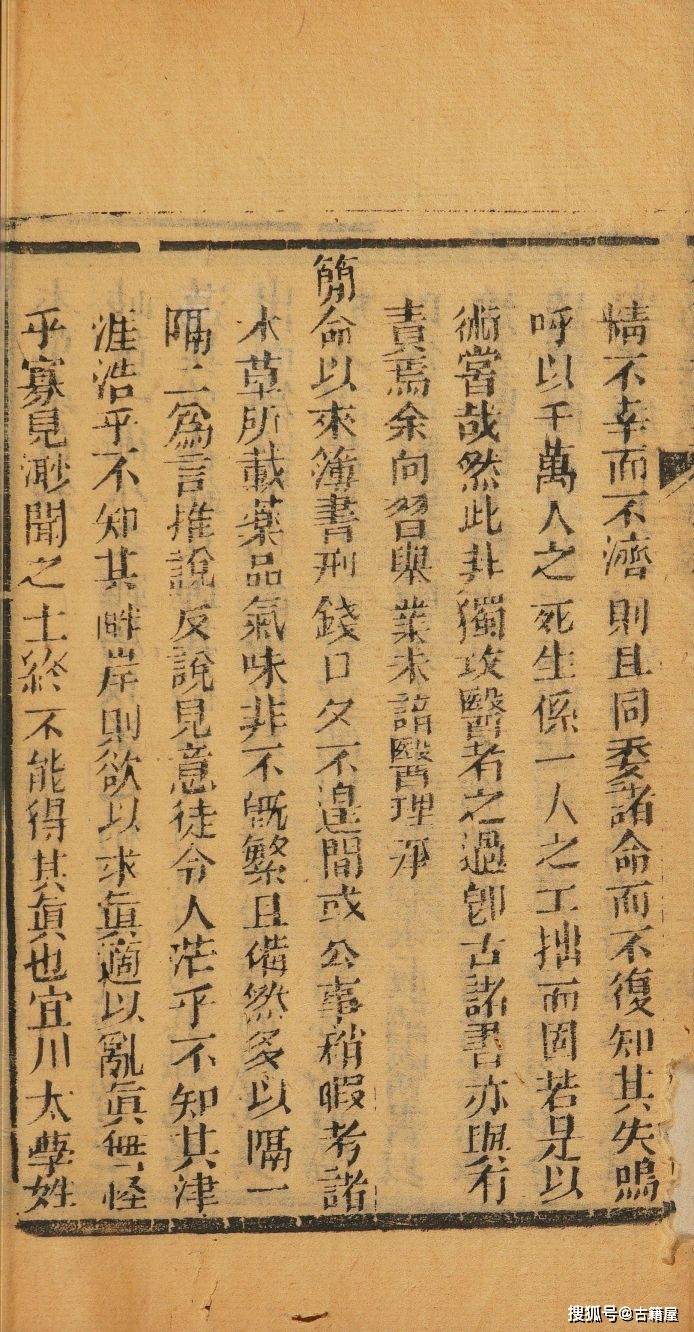 情不幸而不濟則且同委諸命而不復知其失嗚
呼以千萬人之死生係一人之工拙而固若是以
術嘗哉然此非獨攻醫者之過卽古諸書亦與有
責焉余向習舉業未諳醫理承
簡命以來簿書刑錢日夕不遑間或公事稍暇考諸
本草所載藥品氣味非不旣繁且備然多以隔一
隔二爲言推說反說見意徒令人茫乎不知其津
涯浩乎不知其畔岸則欲以求眞適以亂眞無怪
乎寡見渺聞之士終不能得其眞也宜川太學姓
搜狐号@古籍屋